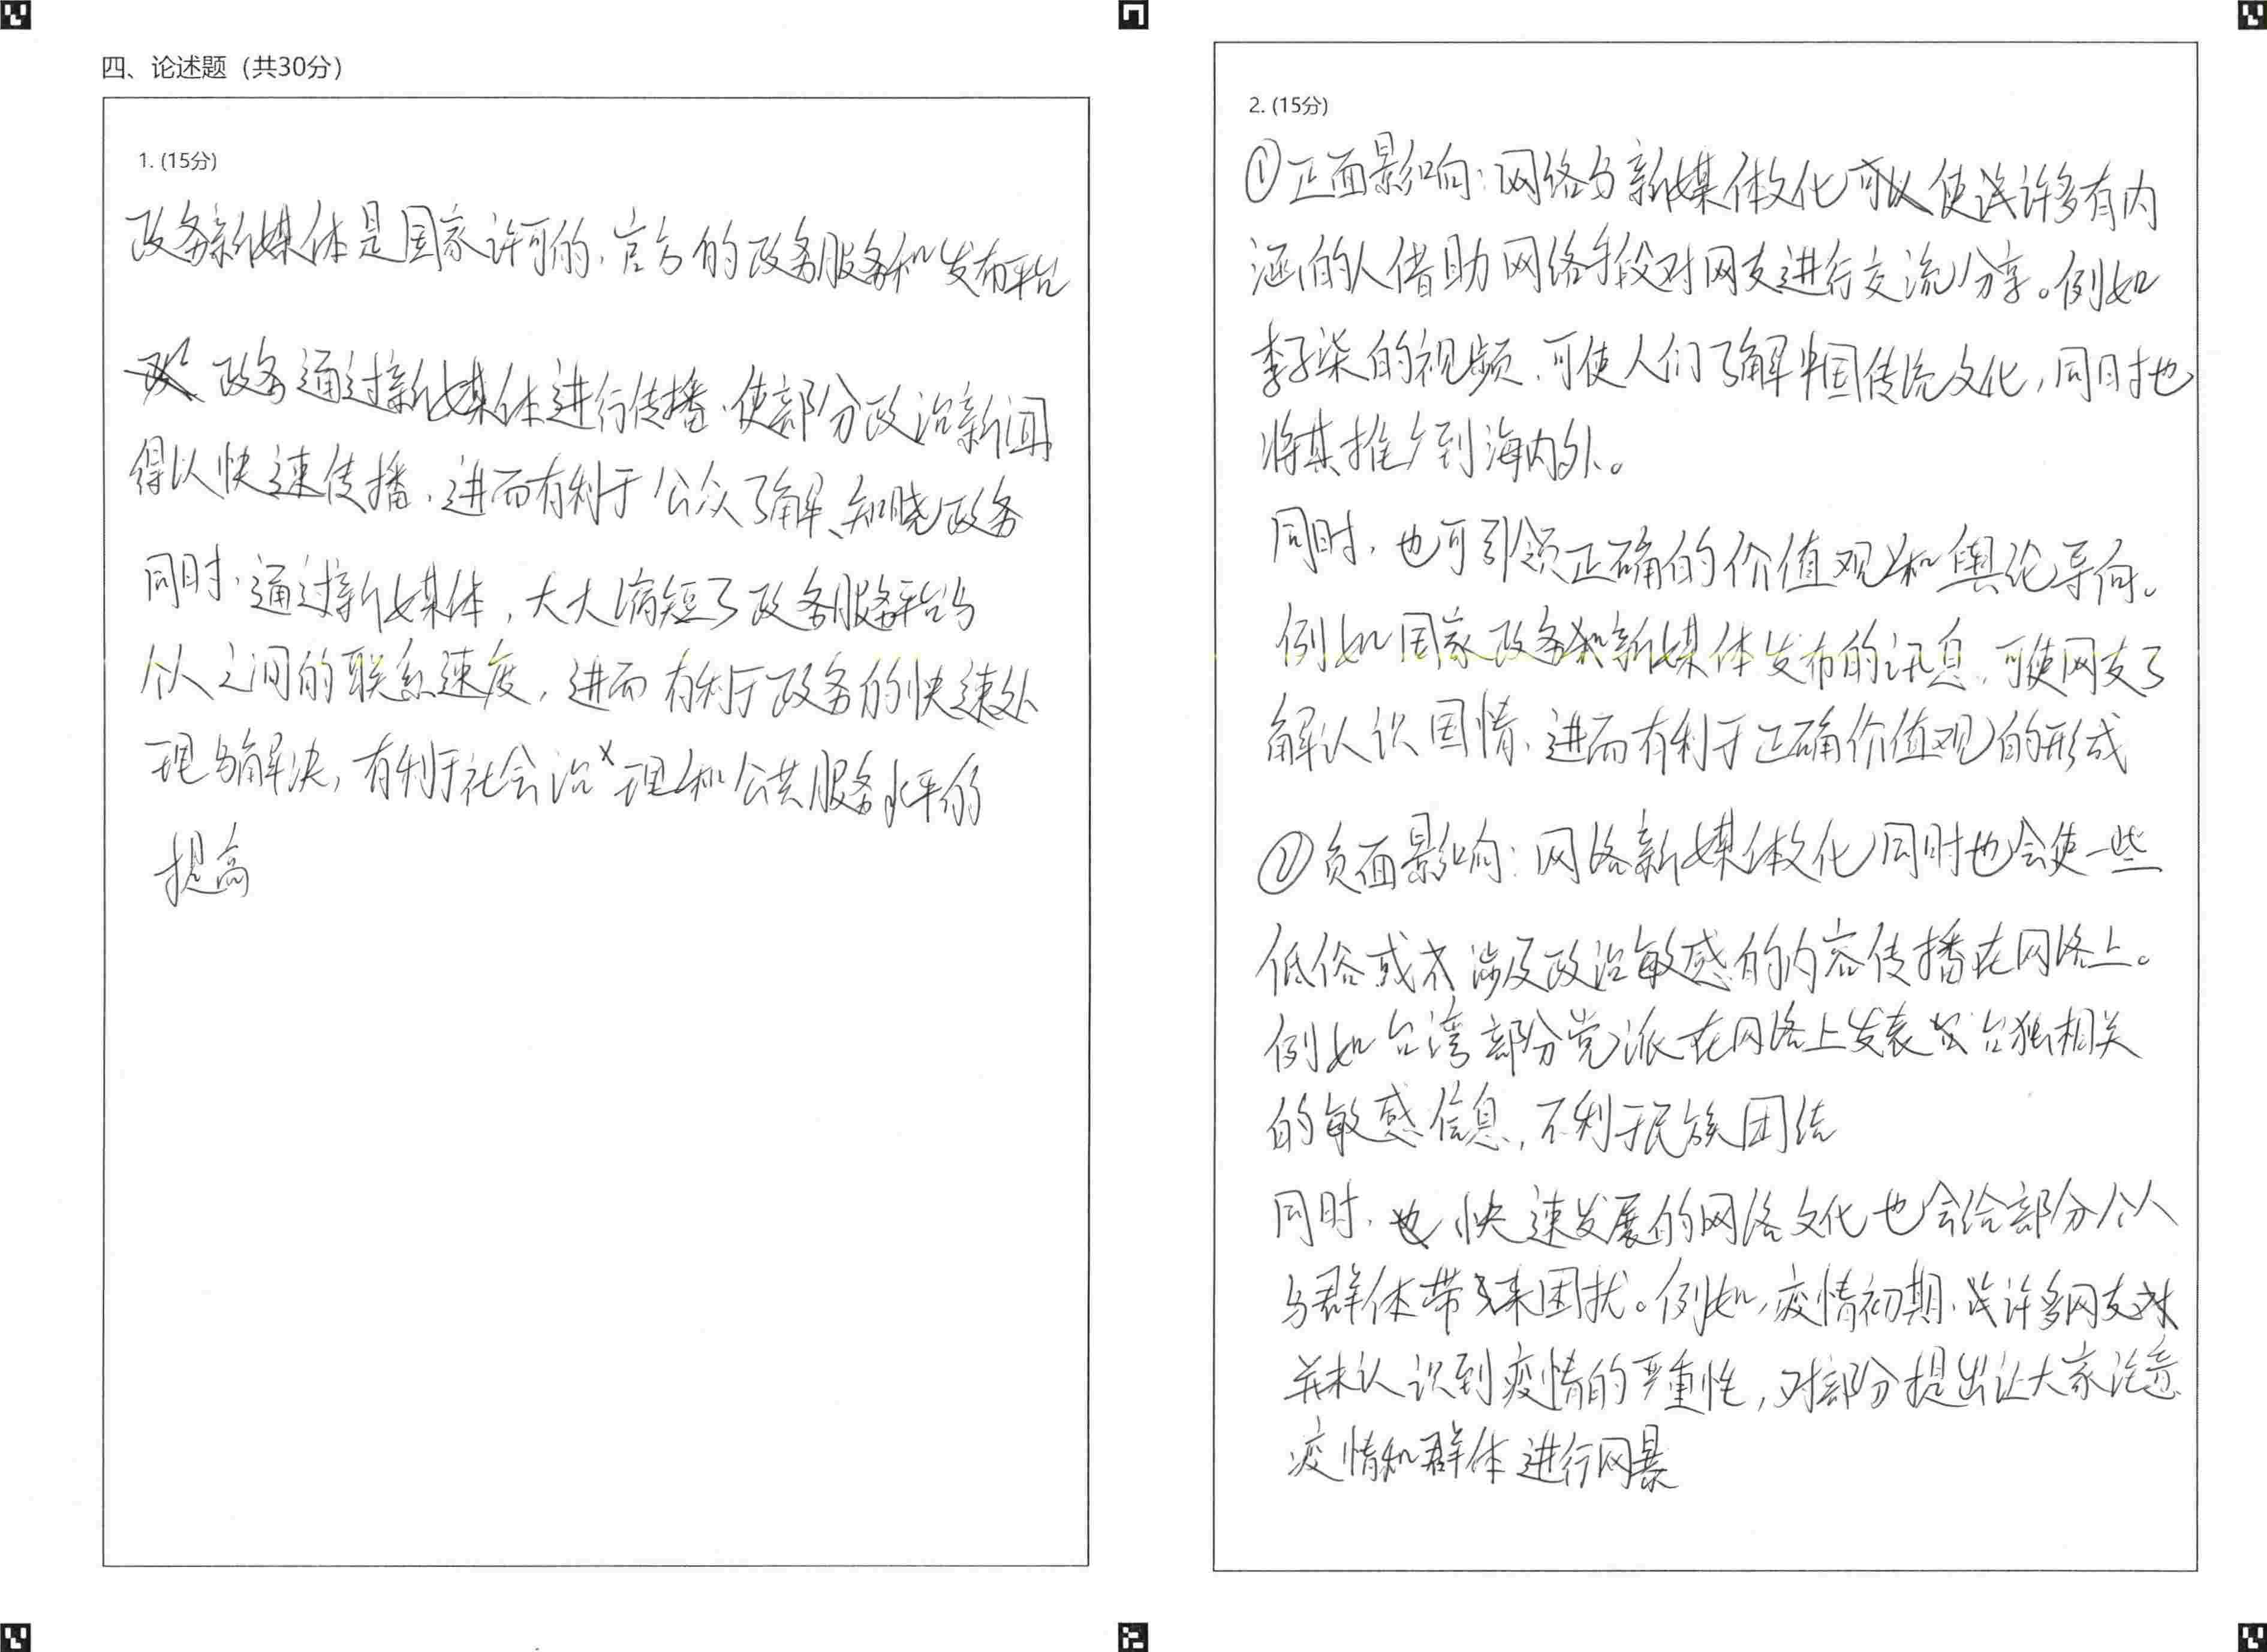 四、论述题（共30分）
1. (15分)
政务新媒体是国家许可的、官方的政务服务和发布平台
政务通过新媒体进行传播，使部分政治新闻
得以快速传播，进而有利于公众了解、知晓政务
同时，通过新媒体，大大缩短了政务服务平台与
个人之间的联系速度，进而有利于政务的快速处
理与解决，有利于社会治理和公共服务水平的
提高
2. (15分)
①正面影响：网络与新媒体文化可以使许多有内
涵的人借助网络手段对网友进行交流分享。例如
李子柒的视频，可使人们了解中国传统文化，同时也
将其推广到海内外。
同时，也可引领正确的价值观和舆论导向。
例如国家政务新媒体发布的讯息，可使网友了
解认识国情，进而有利于正确价值观的形成
②负面影响：网络新媒体文化同时也会使一些
低俗或涉及政治敏感的内容传播在网络上。
例如台湾部分党派在网络上发表台独相关
的敏感信息，不利于民族团结
同时，快速发展的网络文化也会给部分个人
与群体带来困扰。例如，疫情初期，许多网友
并未认识到疫情的严重性，对部分提出让大家注意
疫情和群体进行网暴